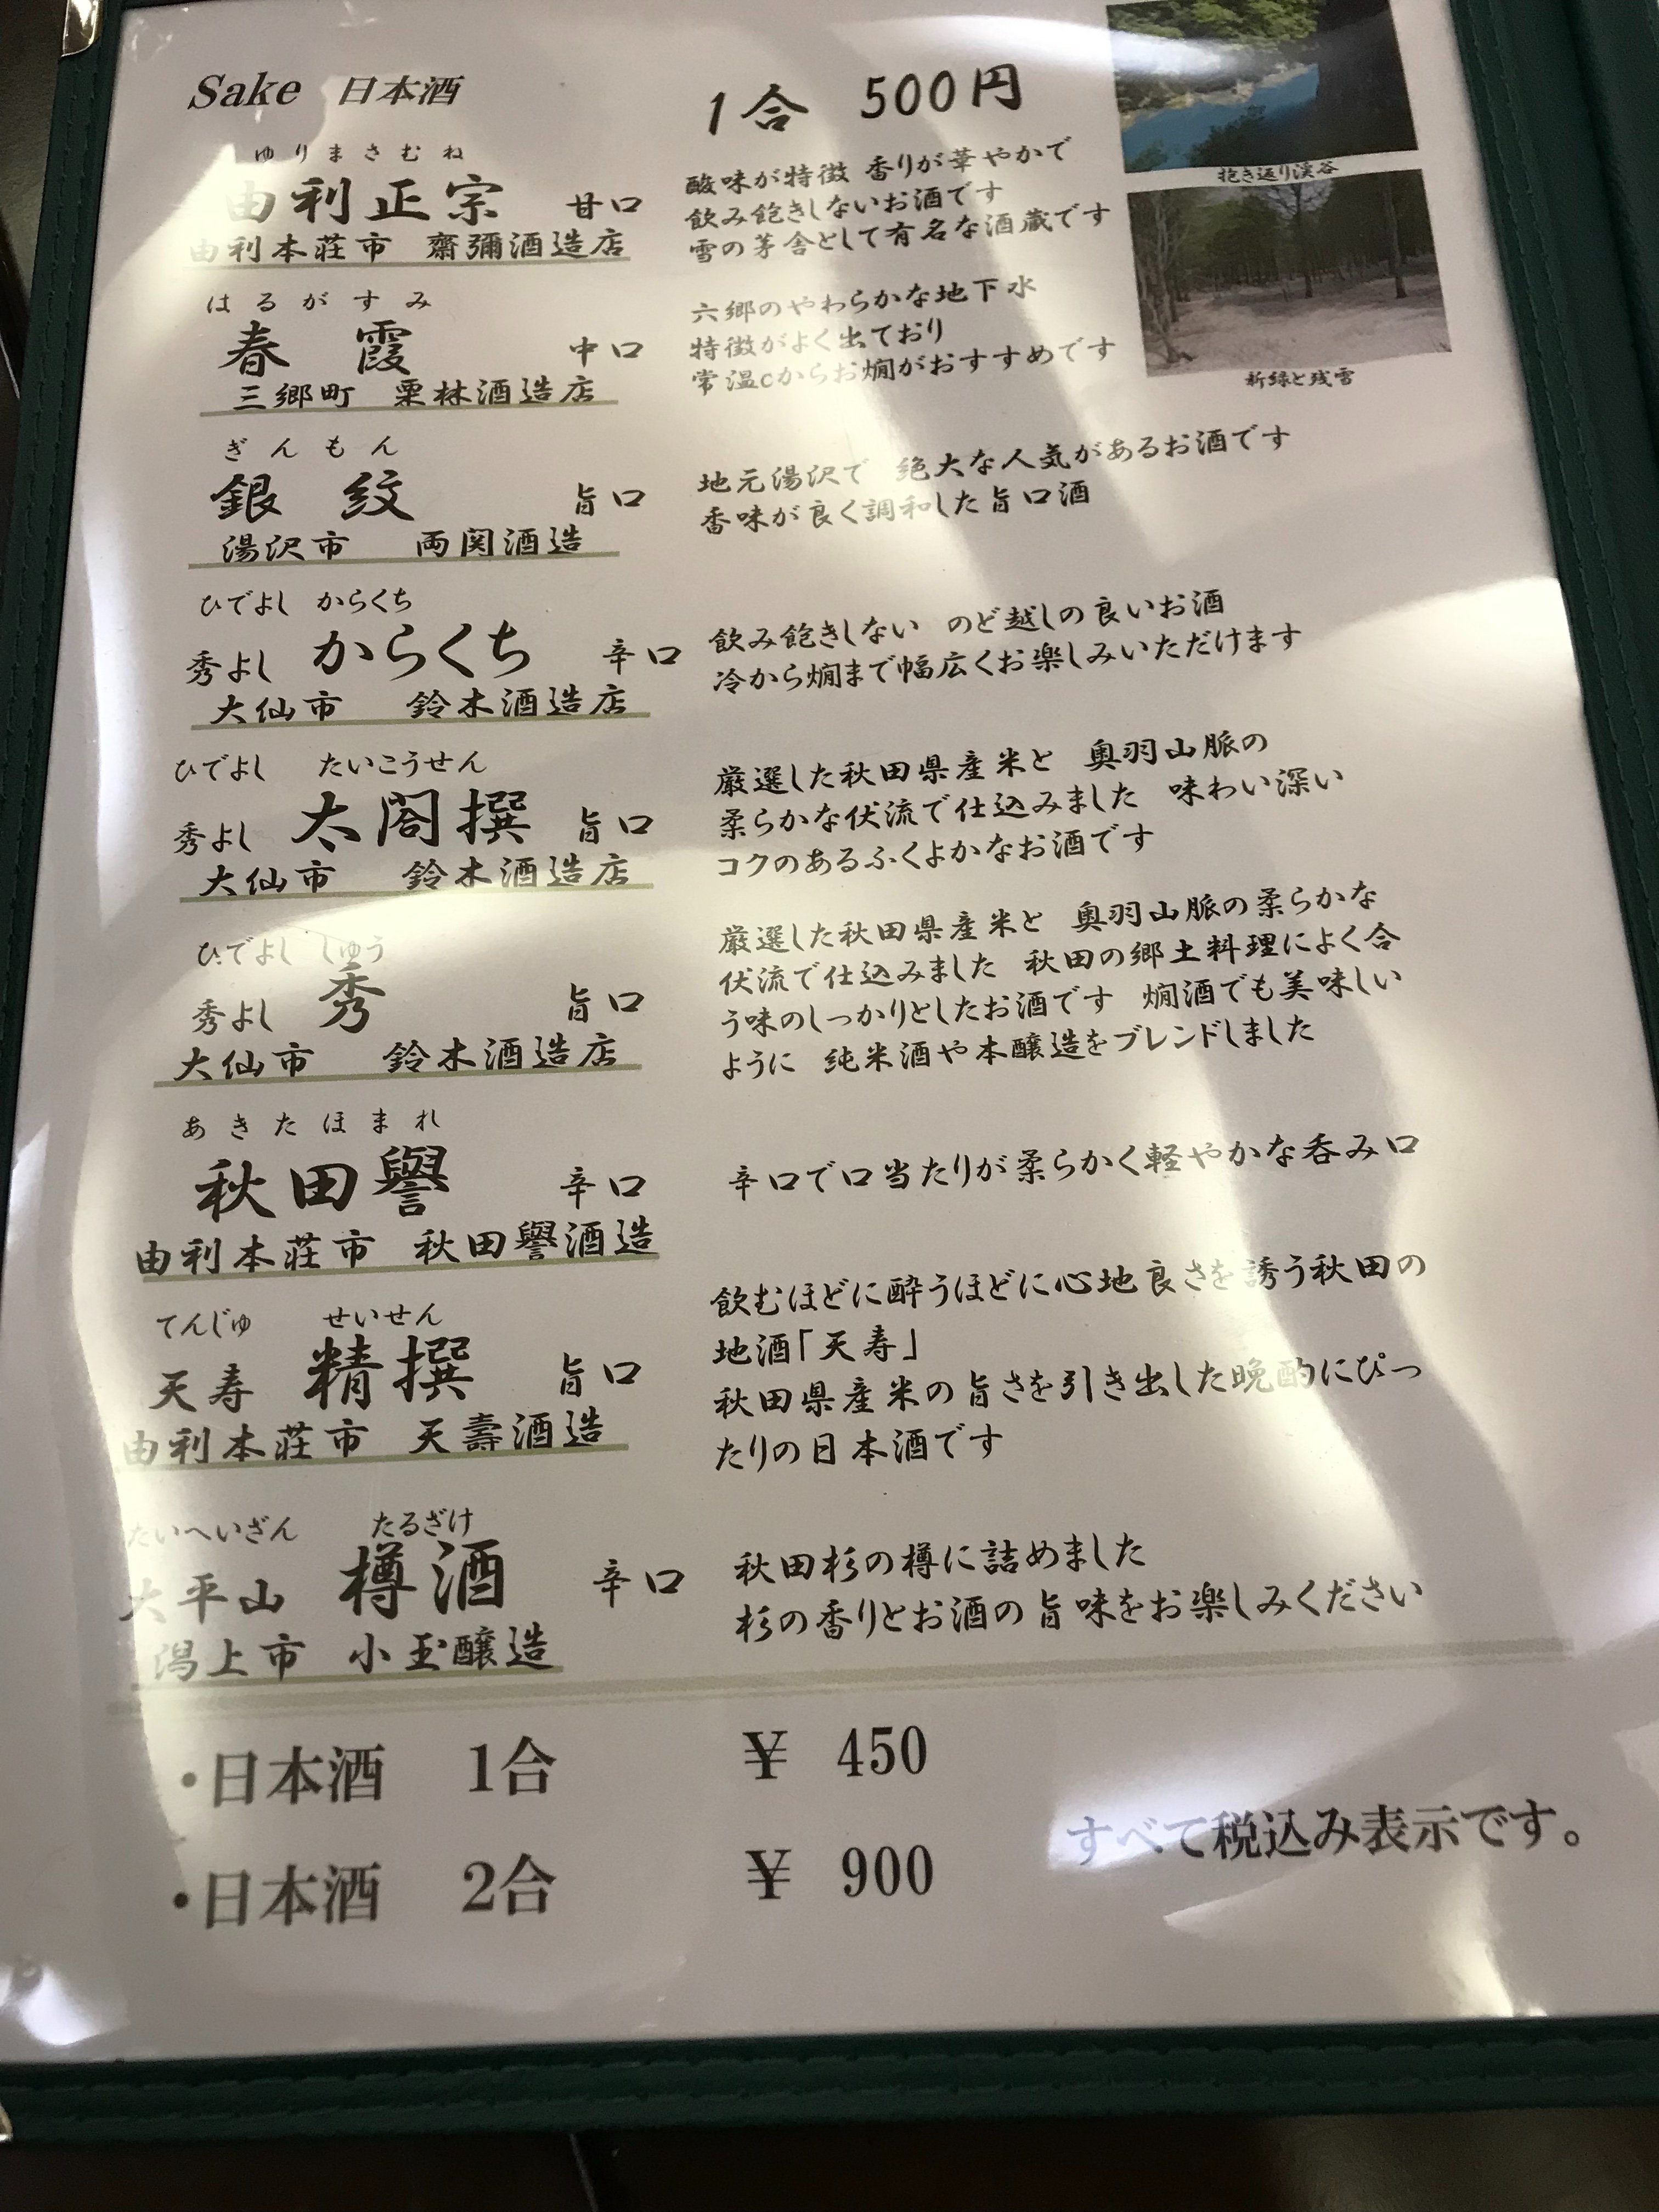 Sake 日本酒 1合 500円
ゆりまさむね
由利正宗 甘口
由利本荘市 齋彌酒造店
酸味が特徴 香りが華やかで
飲み飽きしないお酒です
雪の茅舎として有名な酒蔵です
抱き返り渓谷
新緑と残雪
はるがすみ
春霞 中口
三郷町 栗林酒造店
六郷のやわらかな地下水
特徴がよく出ており
常温cからお燗がおすすめです
ぎんもん
銀紋 旨口
湯沢市 両関酒造
地元湯沢で 絶大な人気があるお酒です
香味が良く調和した旨口酒
ひでよし からくち
秀よし からくち 辛口
大仙市 鈴木酒造店
飲み飽きしない のど越しの良いお酒
冷から燗まで幅広くお楽しみいただけます
ひでよし たいこうせん
秀よし 太閤撰 旨口
大仙市 鈴木酒造店
厳選した秋田県産米と 奥羽山脈の
柔らかな伏流で仕込みました 味わい深い
コクのあるふくよかなお酒です
ひでよし しゅう
秀よし 秀 旨口
大仙市 鈴木酒造店
厳選した秋田県産米と 奥羽山脈の柔らかな
伏流で仕込みました 秋田の郷土料理によく合
う味のしっかりとしたお酒です 燗酒でも美味しい
ように 純米酒や本醸造をブレンドしました
あきたほまれ
秋田譽 辛口
由利本荘市 秋田譽酒造
辛口で口当たりが柔らかく軽やかな呑み口
てんじゅ せいせん
天寿 精撰 旨口
由利本荘市 天壽酒造
飲むほどに酔うほどに心地良さを誘う秋田の
地酒「天寿」
秋田県産米の旨さを引き出した晩酌にぴっ
たりの日本酒です
たいへいざん たるざけ
太平山 樽酒 辛口
潟上市 小玉醸造
秋田杉の樽に詰めました
杉の香りとお酒の旨味をお楽しみください
・日本酒 1合 ¥ 450
・日本酒 2合 ¥ 900
すべて税込み表示です。